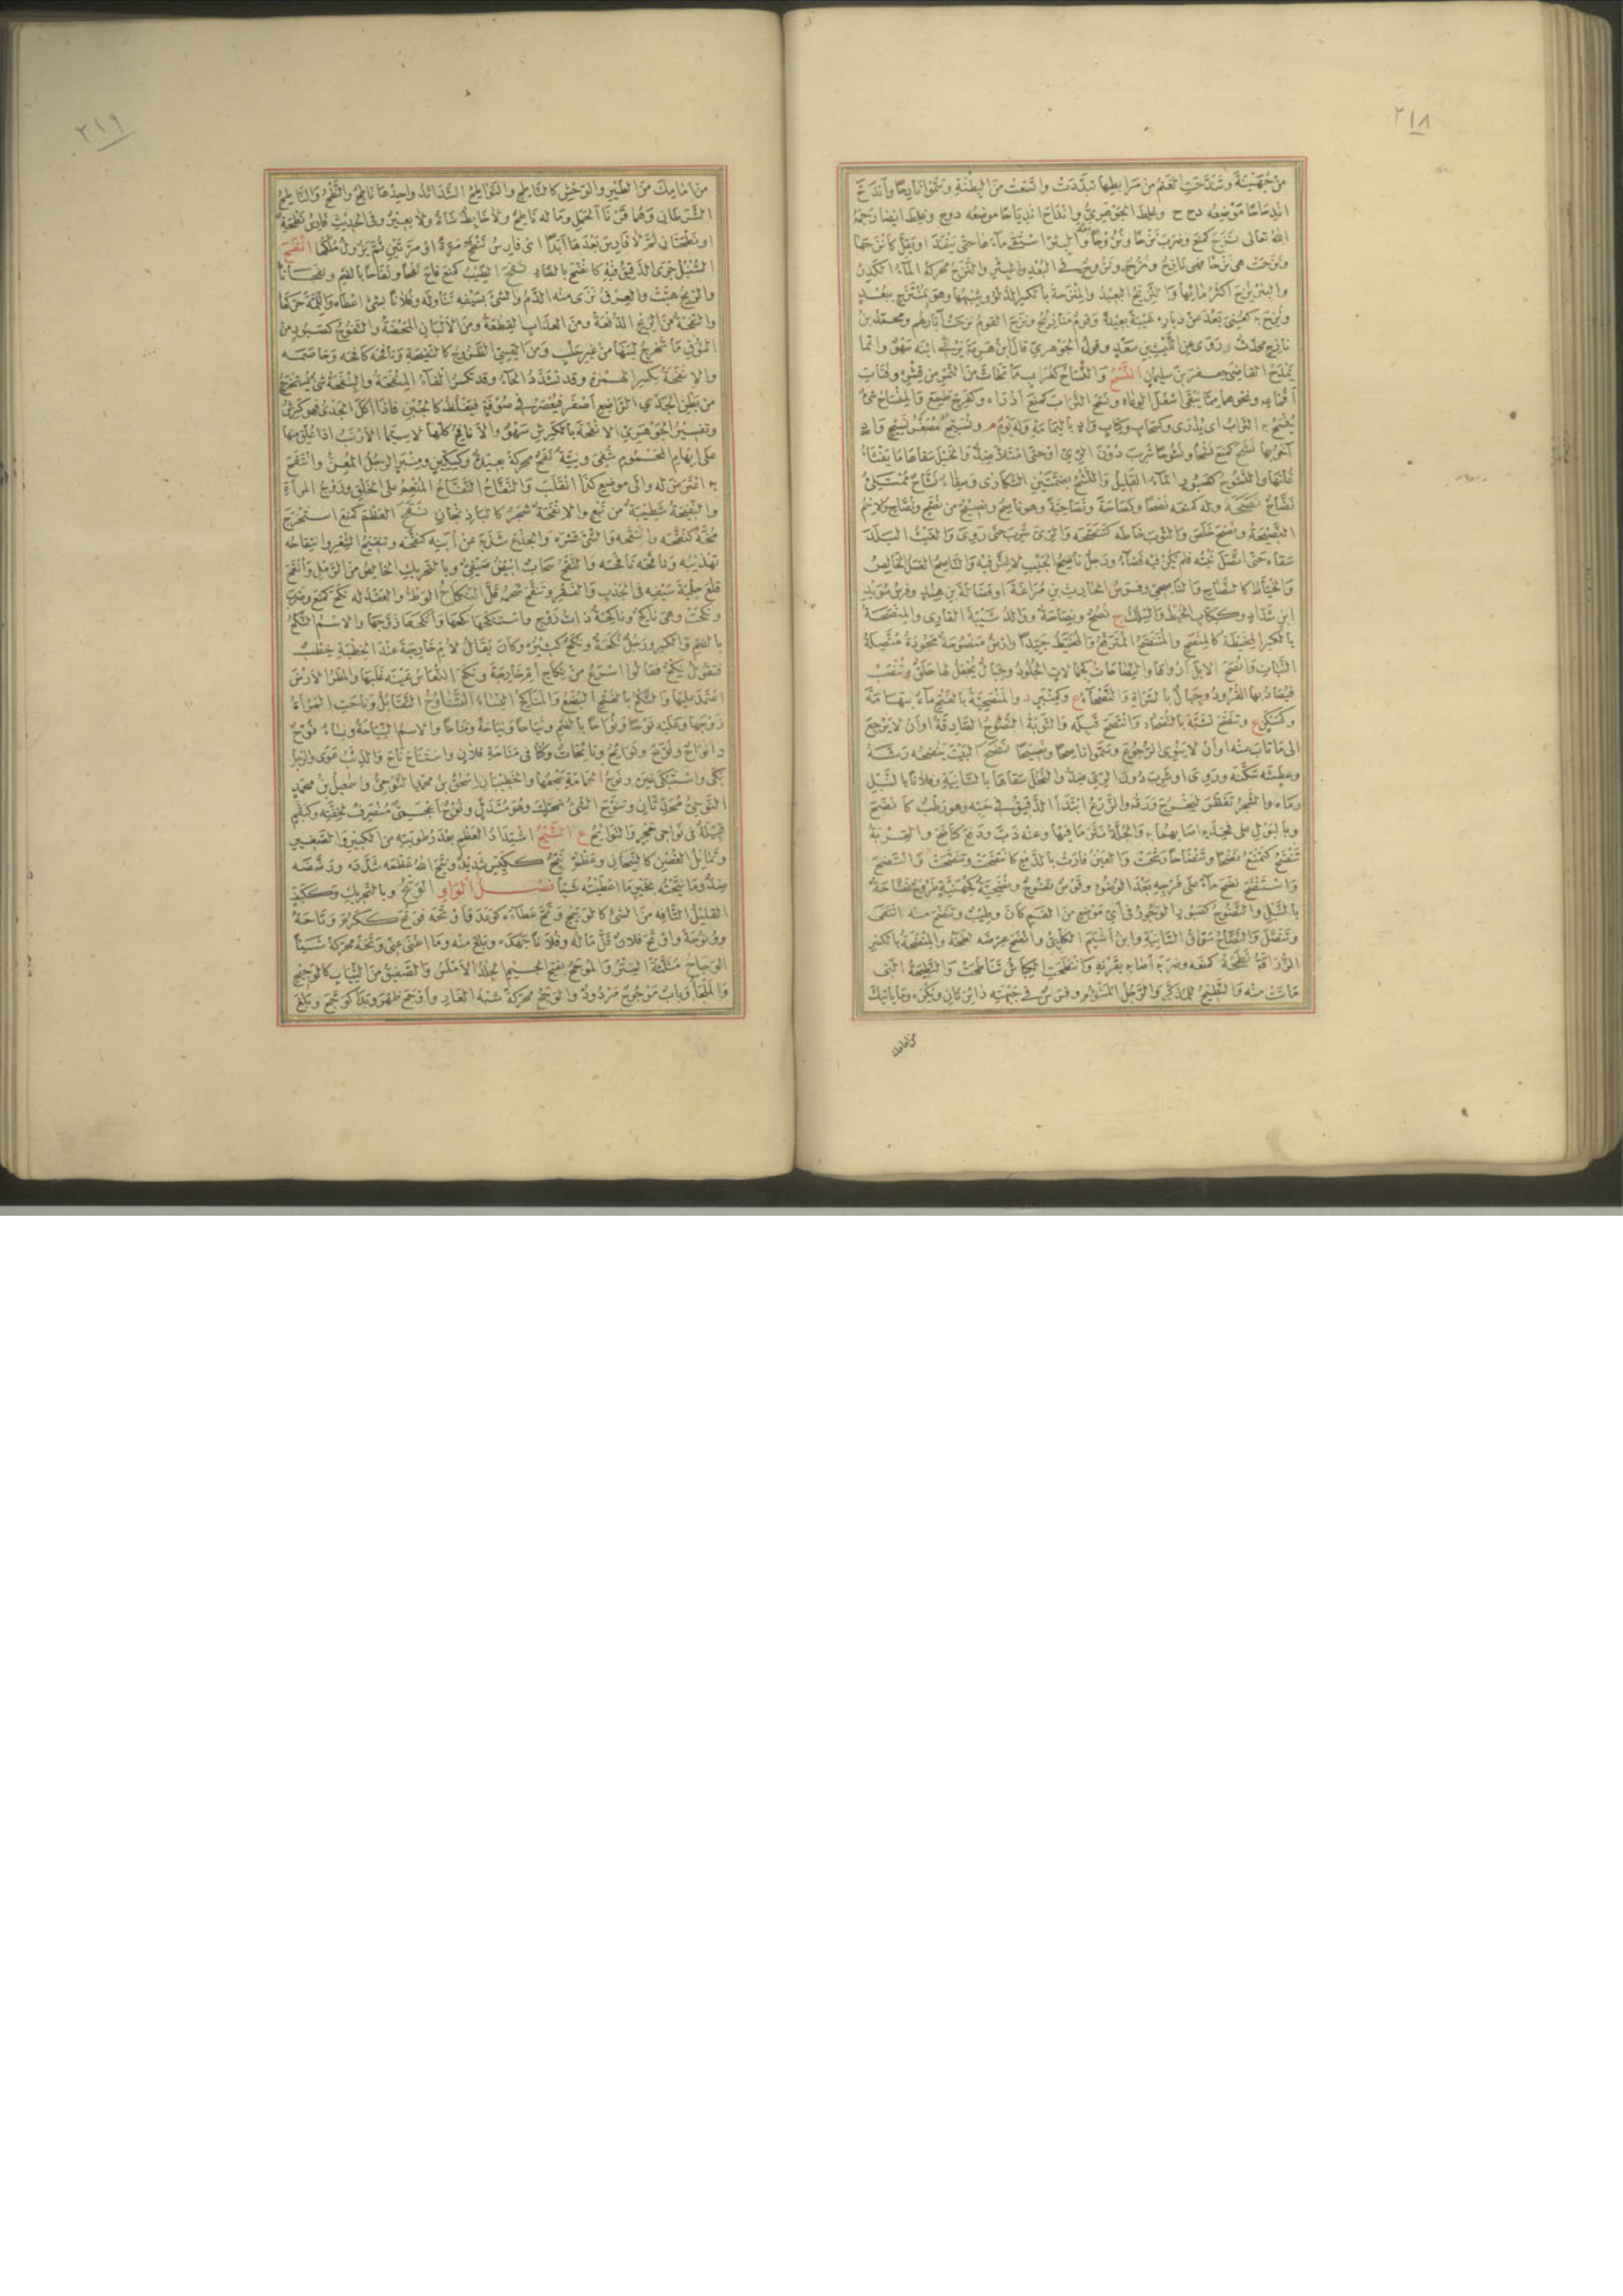 ٢١٨
من جهينة وتندحت الغنم من مرابضها تبددت واتسعت من البطنة وسموا نادحا واندح
اندحاحا موضعه دح ح وغلط الجوهري وانداح اندياحا موضعه دوح وغلط ايضا رحمه
الله تعالى نزح كمنع وضرب نزحا ونزوحا بعد والبئر استقى ماءها حتى ينفد او يقل كانزحها
ونزحت هي نزحا فهي نازح ونزح ونزوح في البعد والبئر والنزح محركة الماء الكدر
والبئر نزح اكثر مائها والنزيح البعيد والمنزحة بالكسر الدلو وشبهها وهو بمنتزح ببعد
ونزح به كعني بعد عن دياره غيبة بعيدة وقوم منازيح ونزح القوم نزحت آبارهم ومحمد بن
نازح محدث روى عن الليث بن سعد وقول الجوهري قال ابن هرمة يرثي ابنه سهو وانما
يمدح القاضي جعفر بن سليمان النسح والنساح كغراب ما تحات من التمر من قشره وفتات
اقماعه ونحوهما مما يبقى اسفل الوعاء ونسح التراب كمنع اذراه وكفرح طمع والمنساح شئ
ينسح به التراب اي يذرى وكسحاب وكتاب واد باليمامة وله يوم م ونسيح مصغر نسيح واد
آخر بها نشح كمنع نشحا ونشوحا شرب دون الري او حتى امتلا ضد والخيل سقاها ما يفثأ
غلتها والنشوح كصبور الماء القليل والنشح بضمتين السكارى وسقاء نشاح ممتلئ
نضاح نصحه وله كمنعه نصحا ونصاحة ونصاحية وهو ناصح ونصيح من نصح ونصاح والاسم
النصيحة ونصح خلص والثوب خاطه كتنصحه والري شرب حتى روي والغيث البلد
سقاه حتى اتصل نبته فلم يكن فيه فضاء ورجل ناصح الجيب لا غش فيه والناصح العسل الخالص
والخياط كالنصاح والناصحي وفرس الحارث بن مراغة او فضالة بن هند وفرس سويد
ابن شداد وككتاب الخيط والسلك ج نصح ونصاحة ووالد شيبة القاري والمنصحة
بالكسر المخيطة كالمنصح والمتنصح المترقع والمخيط جيدا وارض منصوحة مجودة متصلة
النبات وانصح الابل ارواها والنصاحات كجمالات الجلود وحبال يجعل لها حلق وتنصب
فيصاد بها القرود وجبال بالسراة والنصحاء ع وكمنبر د والمنصحية بالفتح ماء بتهامة
وكمسكن ع وتنصح تشبه بالنصحاء وانتصح قبله والتوبة النصوح الصادقة او ان لا يرجع
الى ما تاب منه او ان لا ينوي الرجوع وسموا ناصحا ونصيحا نضح البيت ينضحه رشه
وعطشه سكنه وروي او شرب دون الري ضد والنخل سقاها بالسانية وفلانا بالنبل
رماه والشجر تفطر ليخرج ورقه والزرع ابتدا الدقيق في حبه وهو رطب كانضح
وبالبول على فخذيه اصابهما به والجلة نثر ما فيها وعنه ذب ودفع كناضح والقربة
تنضح كتمنع نضحا وتنضاحا رشحت والعين فارت بالدمع كانتضحت وتنضحت وانتضح
واستنضح نضح ماء على فرجه بعد الوضوء وقوس نضوح ونضحية كجهنية طروح نضاحة
بالنبل والنضوح كصبور الوجور في اي موضع من الفم كان وطيب وتنضح منه انتفى
وتنصل والنضاح سواق السانية وابن اشيم الكلبي وانضح عرضه لطخه والمنضحة بالكسر
الزراقة نطحه كمنعه وضربه اصابه بقرنه وانتطحت الكباش تناطحت والنطيحة التي
ماتت منه والنطيح للمذكر والرجل المشؤم وفرس في جبهته دائرتان ويكره وما ياتيك
من امامك
٢١٩
من امامك من الطير والوحش كالناطح والنواطح الشدائد واحدها ناطح والنطح والناطح
الشرطان وهما قرنا الحمل وما له ناطح ولا خابط شاة ولا بعير وفي الحديث فارس نطحة
او نطحتان ثم لا فارس بعدها ابدا اي فارس تنطح مرة او مرتين ثم يزول ملكها انظح
السنبل جرى الدقيق فيه كانضح بالضاد نفح الطيب كمنع فاح نفحا ونفاحا بالضم ونفحانا
والريح هبت والعرق نزى منه الدم والشئ بسيفه تناوله وفلانا بشئ اعطاه واللمة حركها
والنفحة من الريح الدفعة ومن العذاب القطعة ومن الالبان المحضة والنفوح كصبور من
النوق ما تخرج لبنها من غير حلب ومن القسي الطروح كالنفيحة ونافحه كافحه وخاصمه
والانفحة بكسر الهمزة وقد تشدد الحاء وقد تكسر الفاء والمنفحة والبنفحة شئ يستخرج
من بطن الجدي الراضع اصفر فيعصر في صوفة فيغلظ كالجبن فاذا اكل الجدي فهو كرش
وتفسير الجوهري الانفحة بالكرش سهو والانافح كلها لا سيما الارنب اذا علق منها
على ابهام المحموم شفي ونية نفح محركة بعيدة وكسكين ومنبر الرجل المعن وانتفح
به اعترض له والى موضع كذا انقلب والنفاح النفاع المنعم على الخلق وزوج المراة
والنفيحة شطيبة من نبع والانفحة شجر كالباذنجان نقح العظم كمنع استخرج
مخه كنقحه وانتقحه والشئ قشره والجذع شذبه عن ابنه كنقحه وتنقيح الشعر وانقاحه
تهذيبه وناقحه نافحه والنقح سحاب ابيض صيفي وبالتحريك الخالص من الرمل وانقح
قلع حلية سيفه في الجدب والفقر وتنقح شحمه قل النكاح الوطء والعقد له نكح كمنع وضرب
ونكحت وهي ناكح وناكحة ذات زوج واستنكحها نكحها وانكحها زوجها والاسم النكح
بالضم والكسر ورجل نكحة ونكح كثيره وكان يقال لام خارجة عند الخطبة خطب
فتقول نكح فقالوا اسرع من نكاح ام خارجة ونكح النعاس عينه غلبها والمطر الارض
اعتمد عليها والنكح بالفتح البضع والمناكح النساء التناوح التقابل وناحت المراة
زوجها وعليه نوحا ونواحا بالضم ونياحا ونياحة ومناحا والاسم النياحة ونساء نوح
وانواح ونوح ونوائح ونائحات وكنا في مناحة فلان واستناح ناح والذئب عوى والرجل
بكى واستبكى غيره ونوح الحمامة سجعها والخطيبان اسحق بن محمد النوحي واسمعيل بن محمد
النوحي محدثان وتنوح الشئ تحرك وهو متدل ونوح اعجمي منصرف لخفته وكبقم
قبيلة في نواحي حجر والنوائح ع النيح اشتداد العظم بعد رطوبته من الكبير والصغير
وتمايل الغصن كالنيحان وعظم نيح ككيس شديد ونيح الله عظمه شدده ورضضه
ضد وما نيحته بخير ما اعطيته شيئا فصل الواو الوتح وبالتحريك وككتف
القليل التافه من الشئ كالوتيح وتح عطاءه كوعد واوتحه فوتح ككرم وتاحة
ووتوحة واوتح فلان قل ماله وفلانا جهده وبلغ منه وما اغنى عني وتحة محركة شيئا
الوجاح مثلثة الستر والموجح بفتح الجيم الجلد الاملس والصفيق من الثياب كالوجيح
والملجأ وباب موجوح مردود والوجح محركة شبه الغار واوجح ظهر وبدا كوجح وبلغ